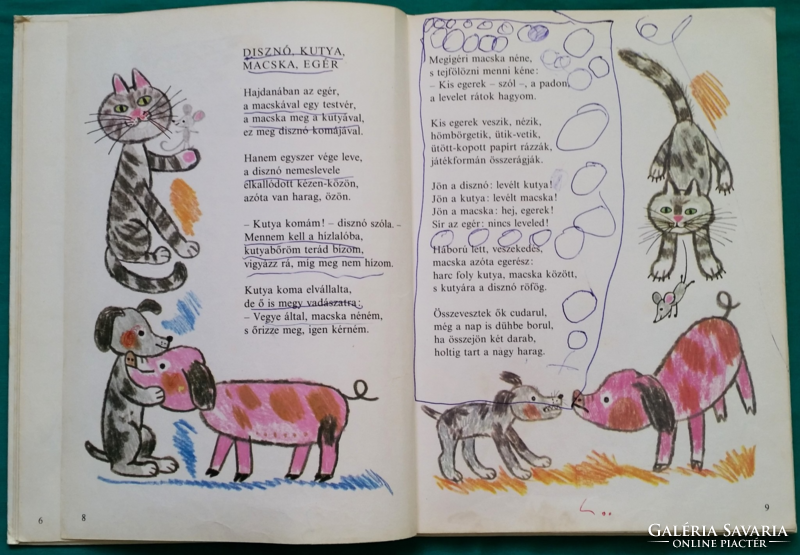 DISZNÓ, KUTYA,
MACSKA, EGÉR
Hajdanában az egér,
a macskával egy testvér,
a macska meg a kutyával,
ez meg disznó komájával.
Hanem egyszer vége leve,
a disznó nemeslevele
elkallódott kézen-közön,
azóta van harag, özön.
– Kutya komám! – disznó szóla. –
Mennem kell a hizlalóba,
kutyabőröm terád bízom,
vigyázz rá, míg meg nem hízom.
Kutya koma elvállalta,
de ő is megy vadászatra:
– Vegye által, macska néném,
s őrizze meg, igen kérném.
6
8
Megígéri macska néne,
s tejfölözni menni kéne:
– Kis egerek – szól –, a padon,
a levelet rátok hagyom.
Kis egerek veszik, nézik,
hömbörgetik, ütik-vetik,
ütött-kopott papírt rázzák,
játékformán összerágják.
Jön a disznó: levélt kutya!
Jön a kutya: levélt macska!
Jön a macska: hej, egerek!
Sír az egér: nincs leveled!
Háború lett, veszekedés,
macska azóta egerész:
harc foly kutya, macska között,
s kutyára a disznó röfög.
Összevesztek ők cudarul,
még a nap is dühbe borul,
ha összejön két darab,
holtig tart a nagy harag.
9
GALÉRIA SAVARIA
ONLINE PIACTÉR